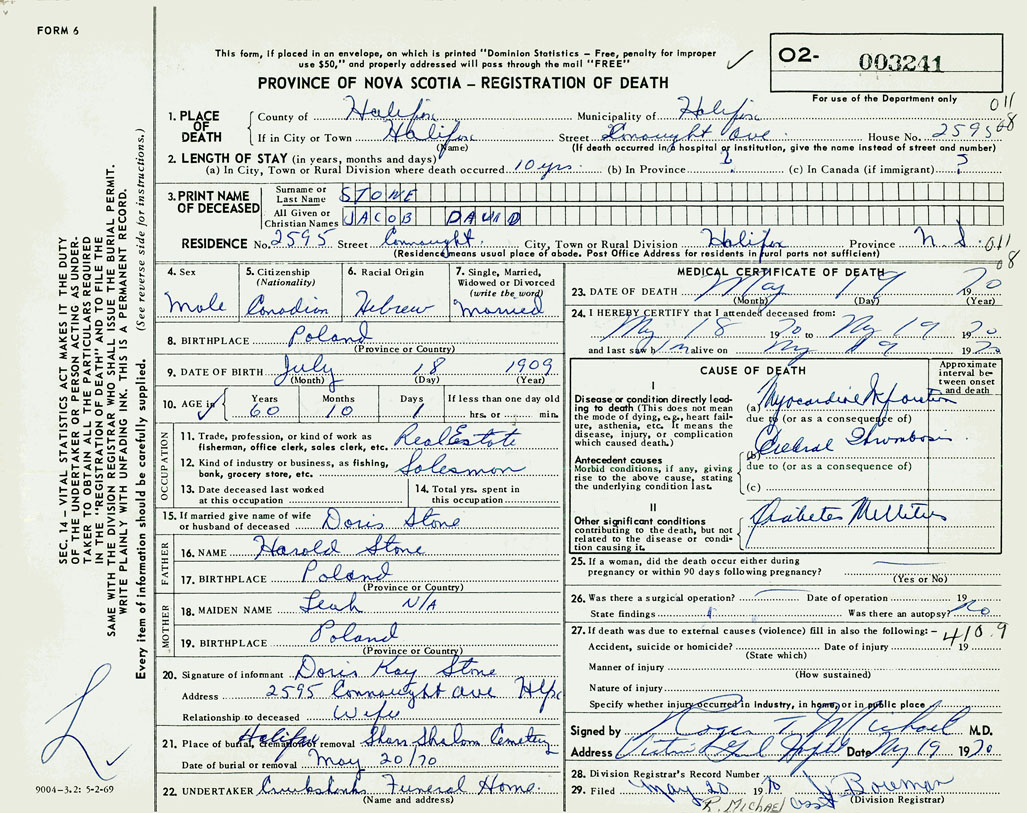 FORM 6
This form, if placed in an envelope, on which is printed "Dominion Statistics – Free, penalty for improper
use $50," and properly addressed will pass through the mail "FREE"
02- 003241
For use of the Department only
PROVINCE OF NOVA SCOTIA – REGISTRATION OF DEATH
011
08
1. PLACE OF DEATH
County of Halifax Municipality of Halifax
If in City or Town Halifax Street Connaught Ave. House No. 2595
(Name) (If death occurred in a hospital or institution, give the name instead of street and number)
2. LENGTH OF STAY (in years, months and days)
(a) In City, Town or Rural Division where death occurred 10 yrs. (b) In Province ? (c) In Canada (if immigrant) ?
3. PRINT NAME OF DECEASED
Surname or Last Name STONE
All Given or Christian Names JACOB DAVID
RESIDENCE No. 2595 Street Connaught City, Town or Rural Division Halifax Province N.S. 011
(Residence means usual place of abode. Post Office Address for residents in rural parts not sufficient)
08
4. Sex Male
5. Citizenship (Nationality) Canadian
6. Racial Origin Hebrew
7. Single, Married, Widowed or Divorced (write the word) Married
8. BIRTHPLACE Poland
(Province or Country)
9. DATE OF BIRTH July 18 1909
(Month) (Day) (Year)
10. AGE in Years 60 Months 10 Days 1 If less than one day old
hrs. or min.
OCCUPATION
11. Trade, profession, or kind of work as fisherman, office clerk, sales clerk, etc. Real Estate
12. Kind of industry or business, as fishing, bank, grocery store, etc. Salesman
13. Date deceased last worked at this occupation
14. Total yrs. spent in this occupation
15. If married give name of wife or husband of deceased Doris Stone
FATHER
16. NAME Harold Stone
17. BIRTHPLACE Poland
(Province or Country)
MOTHER
18. MAIDEN NAME Leah N/A
19. BIRTHPLACE Poland
(Province or Country)
20. Signature of informant Doris Kay Stone
Address 2595 Connaught Ave Hlfx
Relationship to deceased Wife
21. Place of burial, cremation or removal Halifax Shaar Shalom Cemetery
Date of burial or removal May 20/70
22. UNDERTAKER Cruikshanks Funeral Home.
(Name and address)
MEDICAL CERTIFICATE OF DEATH
23. DATE OF DEATH May 19 1970
(Month) (Day) (Year)
24. I HEREBY CERTIFY that I attended deceased from:
My 18 1970 to My 19 1970
and last saw him alive on My 19 1970
CAUSE OF DEATH
Approximate interval between onset and death
I
Disease or condition directly leading to death (This does not mean the mode of dying, e.g., heart failure, asthenia, etc. It means the disease, injury, or complication which caused death.)
(a) Myocardial Infarction
due to (or as a consequence of)
Antecedent causes
Morbid conditions, if any, giving rise to the above cause, stating the underlying condition last.
(b) Cerebral Thrombosis
due to (or as a consequence of)
(c)
II
Other significant conditions contributing to the death, but not related to the disease or condition causing it.
Diabetes Mellitus
25. If a woman, did the death occur either during
pregnancy or within 90 days following pregnancy?
(Yes or No)
26. Was there a surgical operation? Date of operation 19
State findings Was there an autopsy? No
27. If death was due to external causes (violence) fill in also the following:– 410.9
Accident, suicide or homicide? Date of injury 19
(State which)
Manner of injury
(How sustained)
Nature of injury
Specify whether injury occurred in industry, in home, or in public place
Signed by Roger T. Michael M.D.
Address Date My 19 1970
28. Division Registrar's Record Number
29. Filed May 20 1970 Boreman
(Division Registrar)
R. MICHAEL asst
SEC. 14 – VITAL STATISTICS ACT MAKES IT THE DUTY
OF THE UNDERTAKER OR PERSON ACTING AS UNDER-
TAKER TO OBTAIN ALL THE PARTICULARS REQUIRED
IN THE "REGISTRATION OF DEATH" AND TO FILE THE
SAME WITH THE DIVISION REGISTRAR WHO SHALL ISSUE THE BURIAL PERMIT.
WRITE PLAINLY WITH UNFADING INK. THIS IS A PERMANENT RECORD.
Every item of information should be carefully supplied. (See reverse side for instructions.)
9004-3.2: 5-2-69